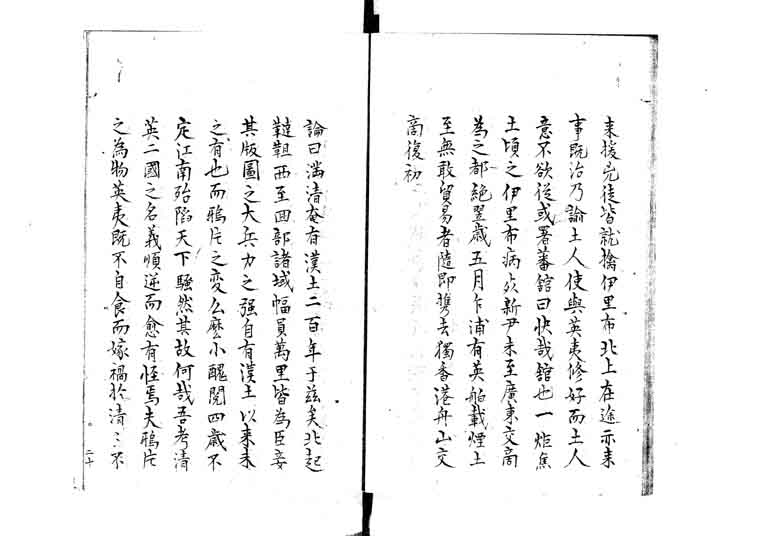 来援兇徒皆就擒伊里布北上在途亦来
事既治乃論土人使與英夷修好而土人
意不欲從或署蕃舘曰快哉舘也一炬焦
土頃之伊里布病歿新尹未至廣東交商
為之都絶翌歳五月乍浦有英舶載煙土
至無敢貿易者隨即携去獨香港舟山交
商復初
論曰満清奄有漢土二百年于茲矣北起
韃靼西至回部諸域幅員萬里皆為臣妾
其版圖之大兵力之强自有漢土以来未
之有也而鴉片之変么麼小醜閲四歳不
定江南殆陷天下騒然其故何哉吾考清
英二國之名義順逆而愈有怪焉夫鴉片
之為物英夷既不自食而嫁禍於清〻不
二十